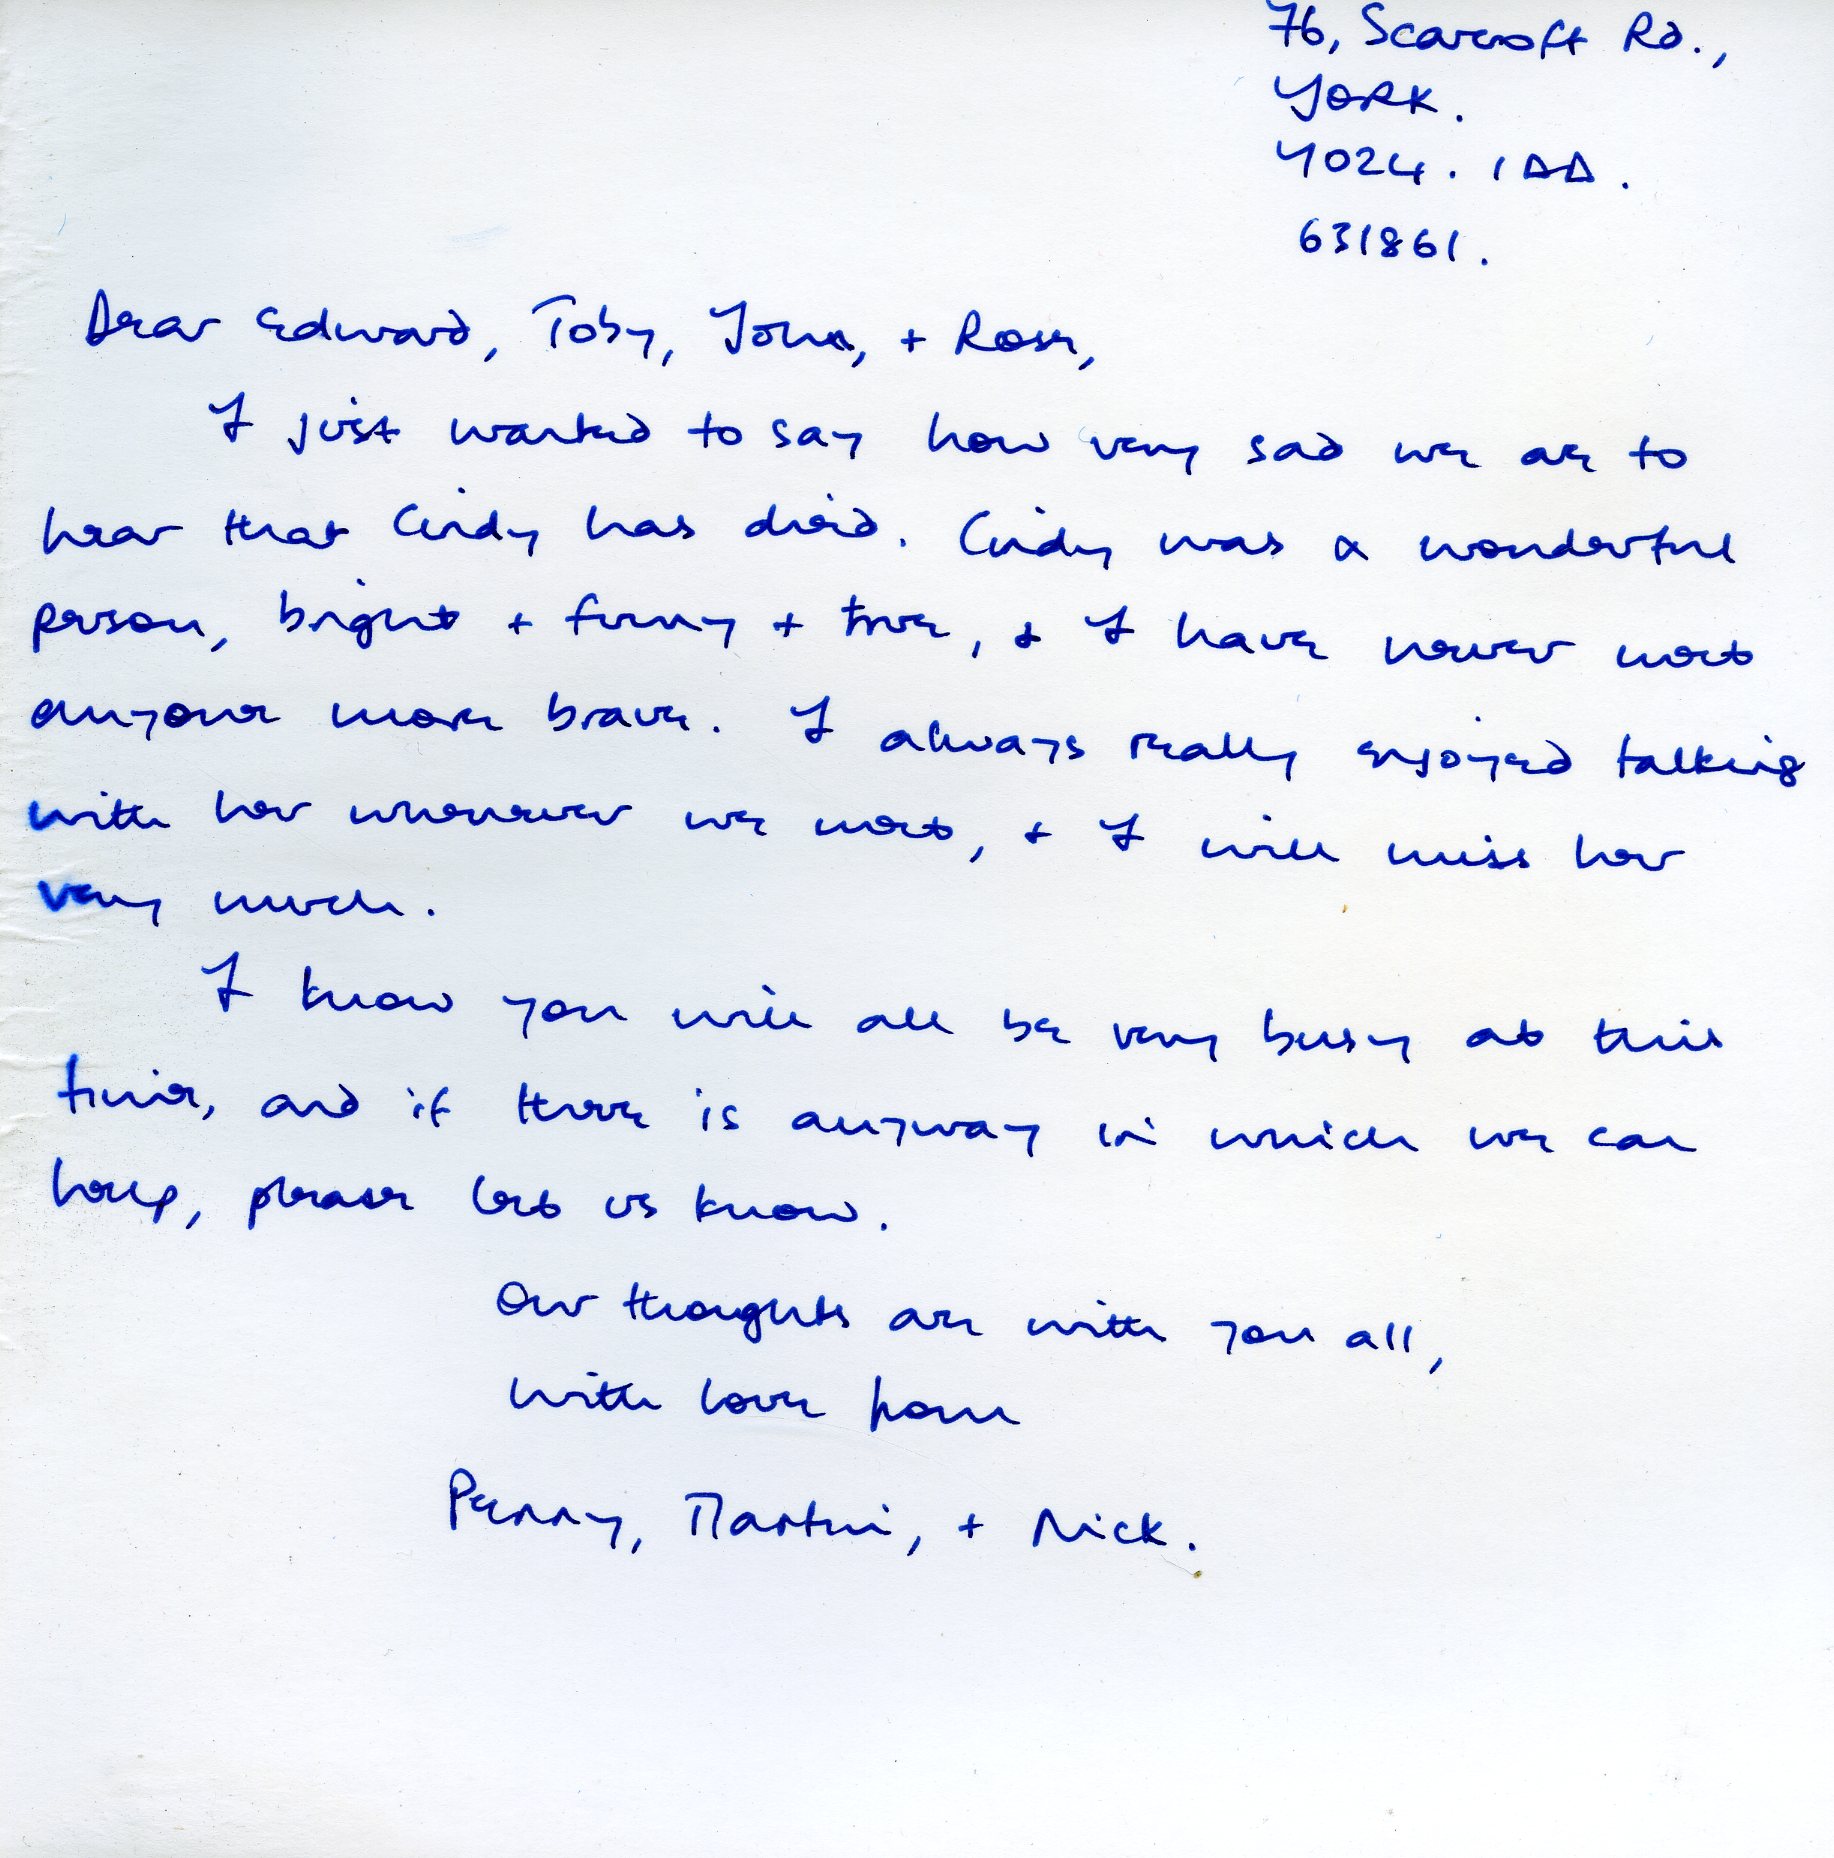 76, Scarcroft Rd.,
YORK.
YO24. 1DD.
631861.
Dear Edward, Toby, John, + Rose,
I just wanted to say how very sad we are to
hear that Cindy has died. Cindy was a wonderful
person, bright + funny + true, + I have never met
anyone more brave. I always really enjoyed talking
with her whenever we met, + I will miss her
very much.
I know you will all be very busy at this
time, and if there is anyway in which we can
help, please let us know.
Our thoughts are with you all,
with love from
Penny, Martin, + Nick.